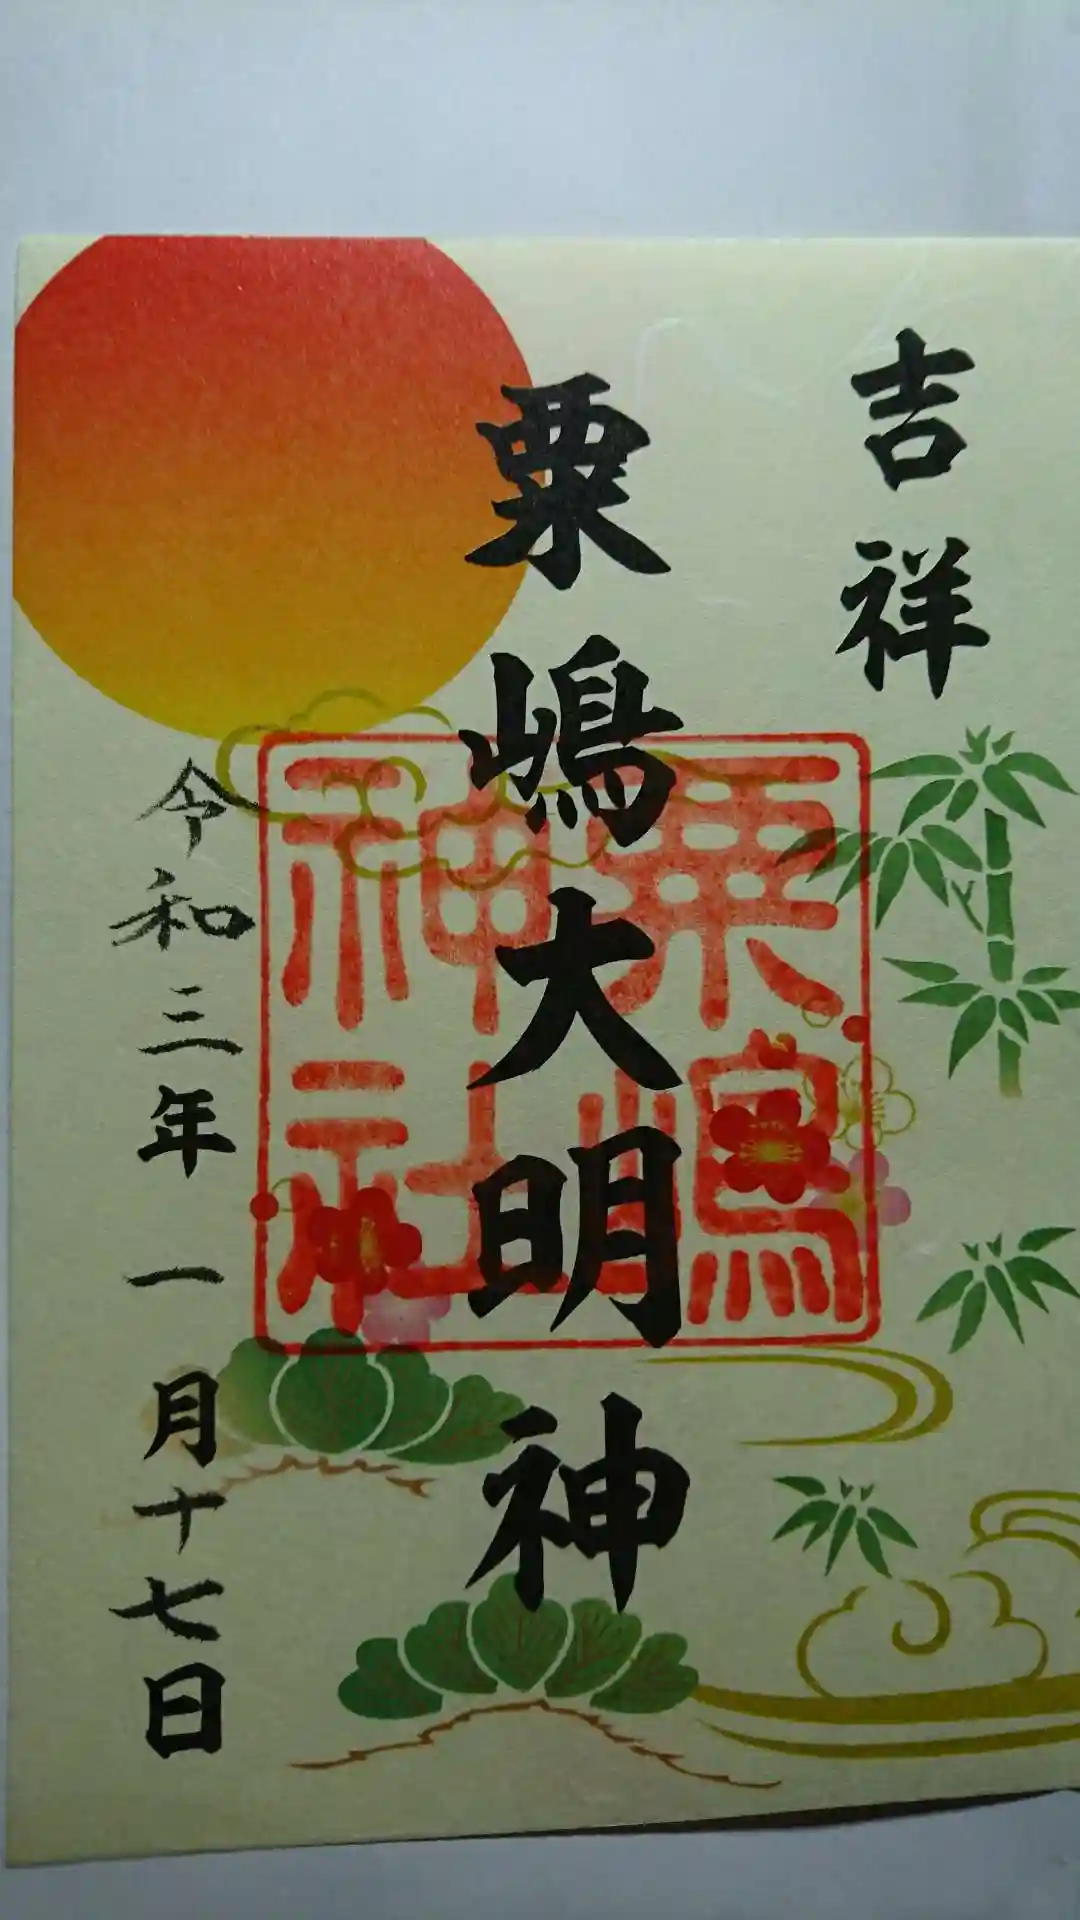 吉祥
粟嶋大明神
粟嶋
神社
令和三年一月十七日